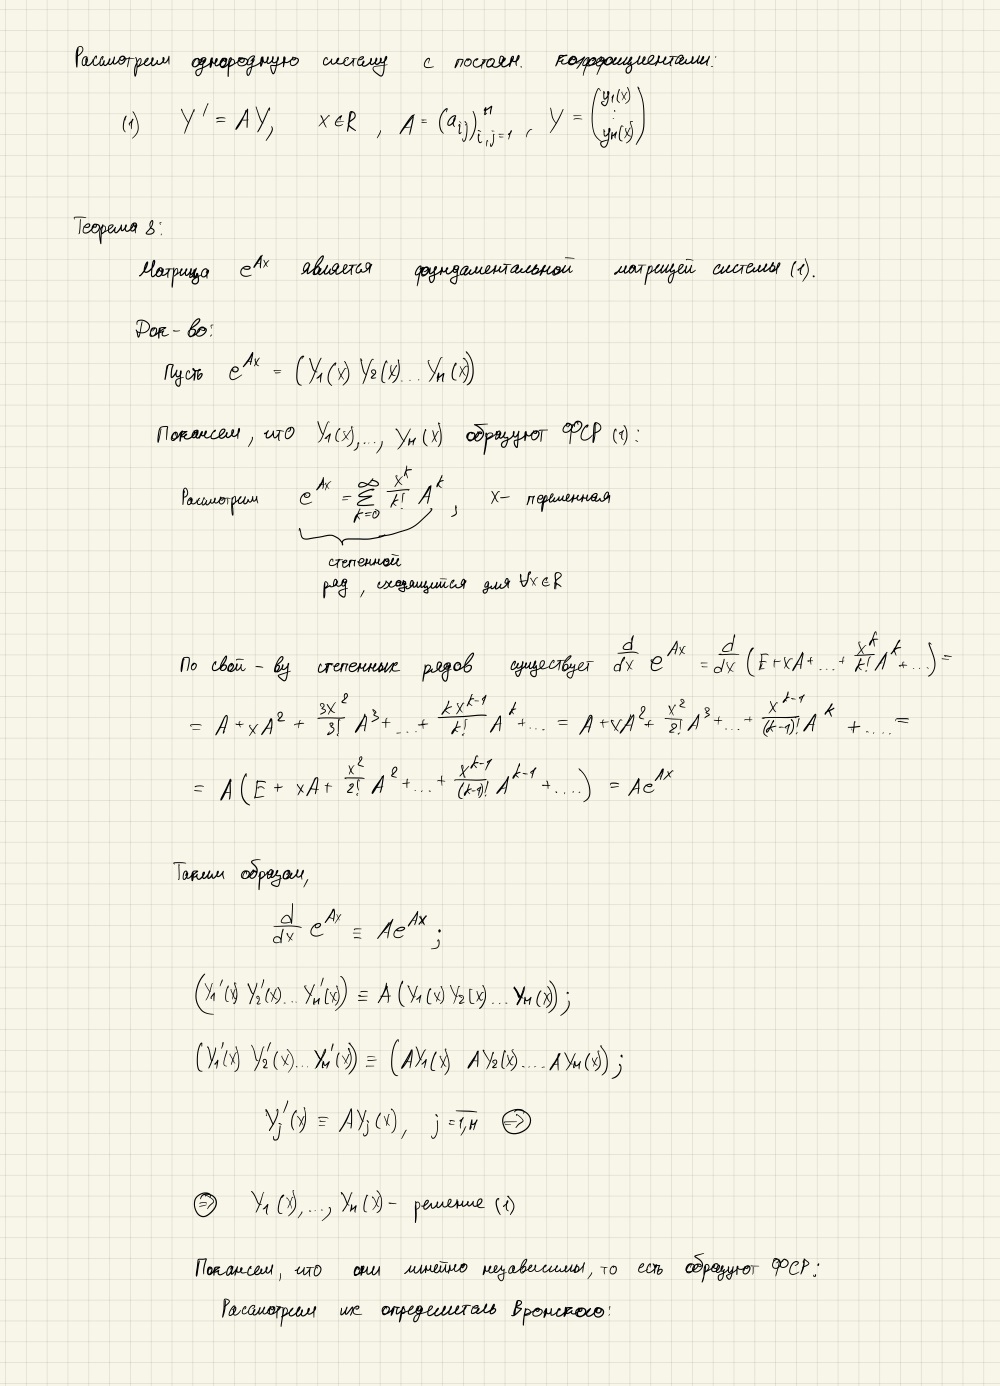 Рассмотрим однородную систему с постоян. коэффициентами:
(1) Y' = AY, x∈R, A = (a_{ij})^n_{i,j=1}, Y = (y_1(x) ⋮ y_n(x))
Теорема 8:
Матрица e^{Ax} является фундаментальной матрицей системы (1).
Док-во:
Пусть e^{Ax} = (Y_1(x) Y_2(x)...Y_n(x))
Покажем, что Y_1(x),..., Y_n(x) образуют ФСР (1):
Рассмотрим e^{Ax} = ∑_{k=0}^{∞} x^k/k! A^k, x – переменная
степенной
ряд, сходящийся для ∀x∈R
По свой-ву степенных рядов существует d/dx e^{Ax} = d/dx (E+xA+...+ x^k/k! A^k +...) =
= A + xA^2 + 3x^2/3! A^3 + ... + kx^{k-1}/k! A^k + ... = A + xA^2 + x^2/2! A^3 + ... + x^{k-1}/(k-1)! A^k + .... =
= A (E + xA + x^2/2! A^2 + ... + x^{k-1}/(k-1)! A^{k-1} + ....) = Ae^{Ax}
Таким образом,
d/dx e^{Ax} ≡ Ae^{Ax};
(Y_1'(x) Y_2'(x)... Y_n'(x)) ≡ A (Y_1(x) Y_2(x)... Y_n(x));
(Y_1'(x) Y_2'(x)... Y_n'(x)) ≡ (AY_1(x) AY_2(x).... AY_n(x));
Y_j'(x) ≡ AY_j(x), j = \overline{1,n} ⇒
⇒ Y_1(x),..., Y_n(x) – решение (1)
Покажем, что они линейно независимы, то есть образуют ФСР:
Рассмотрим их определитель Вронского: